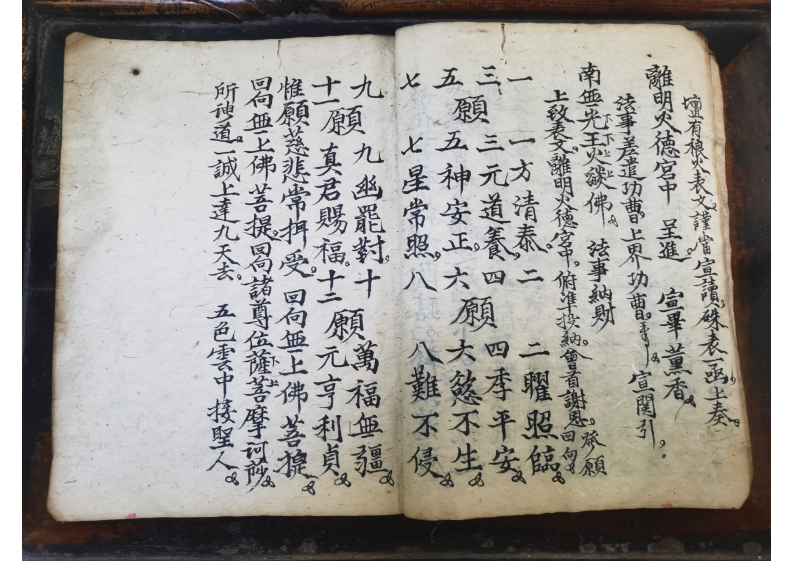 壇有禳火表文謹當宣讀。硃表一函上奏。
離明火德宮中 呈進。 宣畢薰香
法事差遣功曹 上界功曹。 宣関引。
南無光王火燄佛 法事納財
上致表文離明火德宮中。俯準投納。會首謝恩回向 發願
一 一方清泰。二 二曜照臨。
三 三元道養 四 四季平安。
願 願
五 五神安正。六 六慾不生。
七 七星常照。八 八難不侵。
九 九幽罷對。十 萬福無疆。
願 願
十一 真君賜福。十二 元亨利貞。
惟願慈悲常拥受。回向無上佛菩提
回向無上佛菩提。回向諸尊位薩菩摩訶薩
所神道。一誠上達九天去。 五色雲中接聖人。